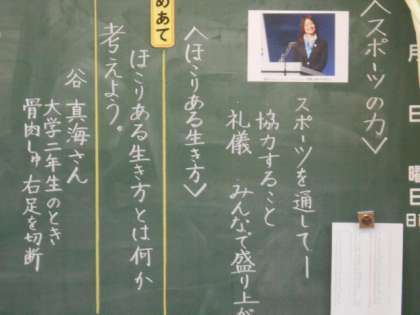 月
日
曜日
日直
〈スポーツの力〉
スポーツを通して―
協力すること
礼儀 みんなで盛り上が
〈ほこりある生き方〉
めあて
ほこりある生き方とは何か
考えよう。
谷 真海さん
大学二年生のとき
骨肉しゅ 右足を切断